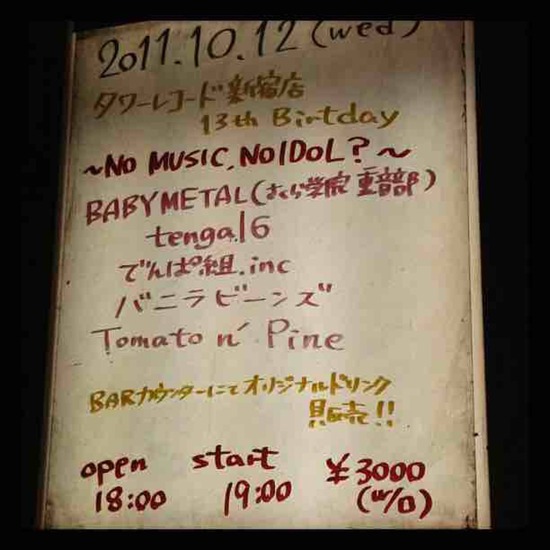 2011.10.12 (wed)
タワーレコード新宿店
13th Birtday
～NO MUSIC, NO IDOL?～
BABYMETAL (さくら学院 重音部)
tengal6
でんぱ組.inc
バニラビーンズ
Tomato n' Pine
BARカウンターにてオリジナルドリンク
販売!!
open start ¥3000
18:00 19:00 (w/o)